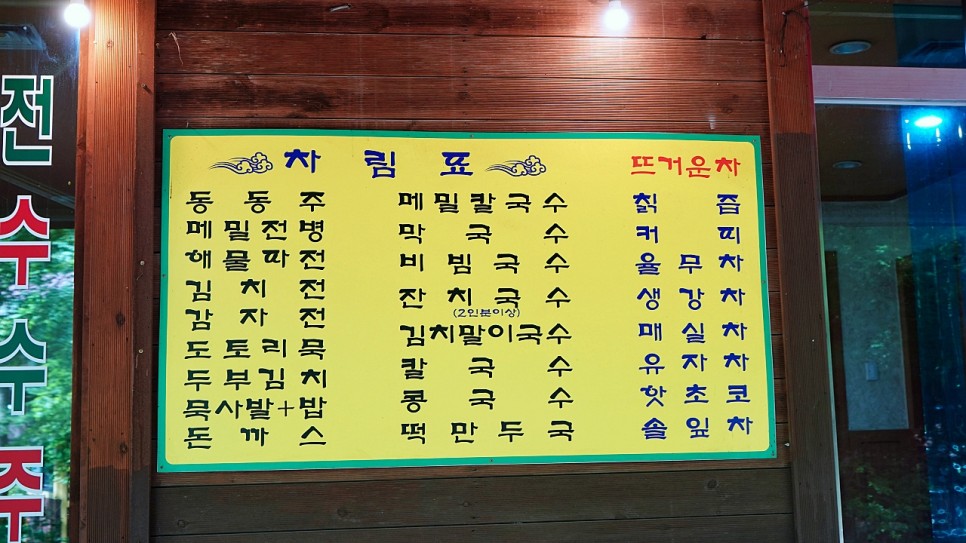 차림표
동동주
메밀전병
해물파전
김치전
감자전
도토리묵
두부김치
묵사발+밥
돈까스
메밀칼국수
막국수
비빔국수
잔치국수
(2인분이상)
김치말이국수
칼국수
콩국수
떡만두국
뜨거운차
칡즙
커피
율무차
생강차
매실차
유자차
핫초코
솔잎차
전
수
수
주